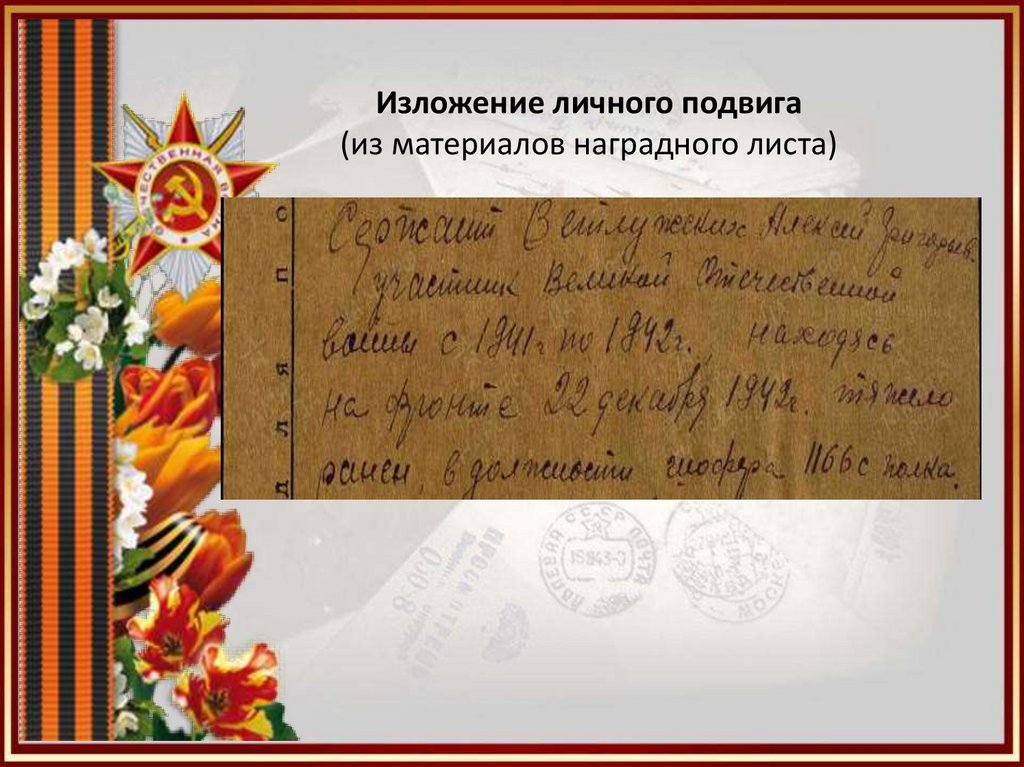 Изложение личного подвига
(из материалов наградного листа)
ОТЕЧЕСТВЕННАЯ ВОЙНА
Сержант Ветлужских Алексей Григорьев.
участник Великой Отечественной
войны с 1941г по 1942г., находясь
на фронте 22 декабря 1942г. тяжело
ранен, в должности шофера 1166 с полка.
Д Л Я П С
ПОЛЕВАЯ СССР ПОЧТА
ПРОСМОТРЕНО